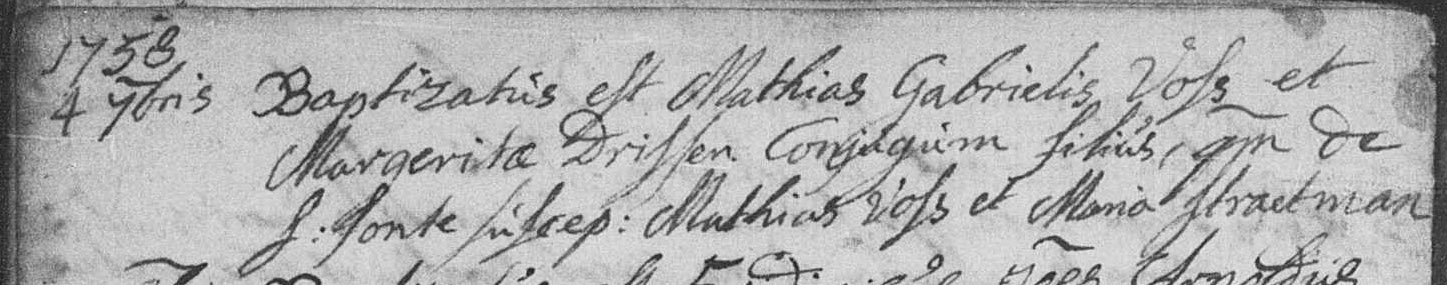 1758
4 7bris Baptizatus est Mathias Gabrielis Voss et
Margeritæ Drissen Conjugum filius, qm de
s. fonte suscep: Mathias Voss et Maria Straetman
Arnoldus